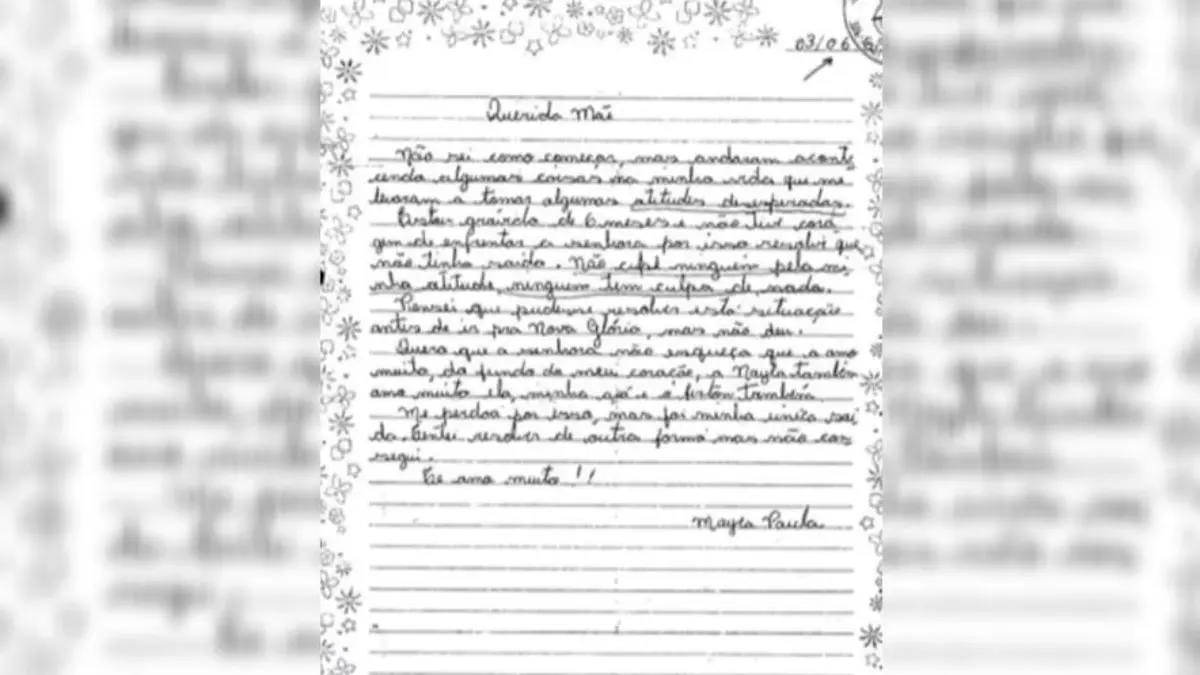 03/06
Querida Mãe
Não sei como começar, mas andaram aconte
cendo algumas coisas na minha vida que me
levaram a tomar algumas atitudes desesperadas.
Estou grávida de 6 meses e não tive cora
gem de enfrentar a senhora por isso resolvi que
não tinha saída. Não culpe ninguem pela mi
nha atitude, ninguem tem culpa de nada.
Pensei que pudesse resolver esta situação
antes de ir pra Nova Glória, mas não deu.
Quero que a senhora não esqueça que a amo
muito, do fundo do meu coração, a Nayla também
amo muito ela, minha e o também
Me perdoa por isso, mas foi minha unica sai
da. Tentei resolver de outra forma mas não con
segui.
Te amo muito!!
Mayra Paula